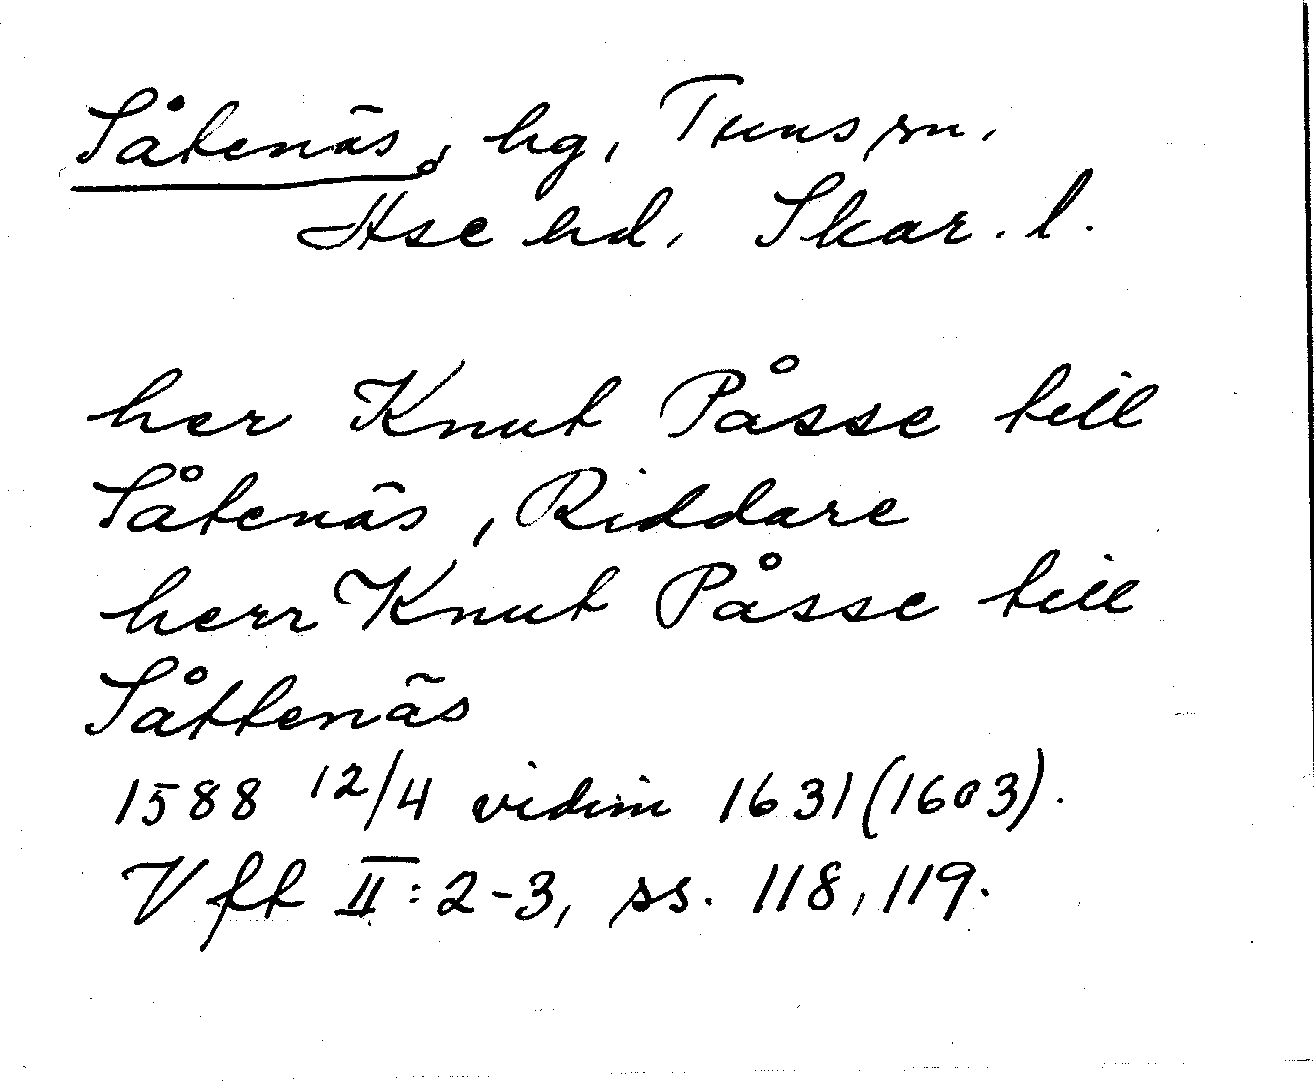 Såtenäs, hg, Tuns sn.
Åse hd, Skar. l.
her Knut Påsse till
Såtenäs, Riddare
herr Knut Påsse till
Såttenäs
1588 12/4 vidim 1631 (1603).
Vft II:2-3, ss. 118, 119.